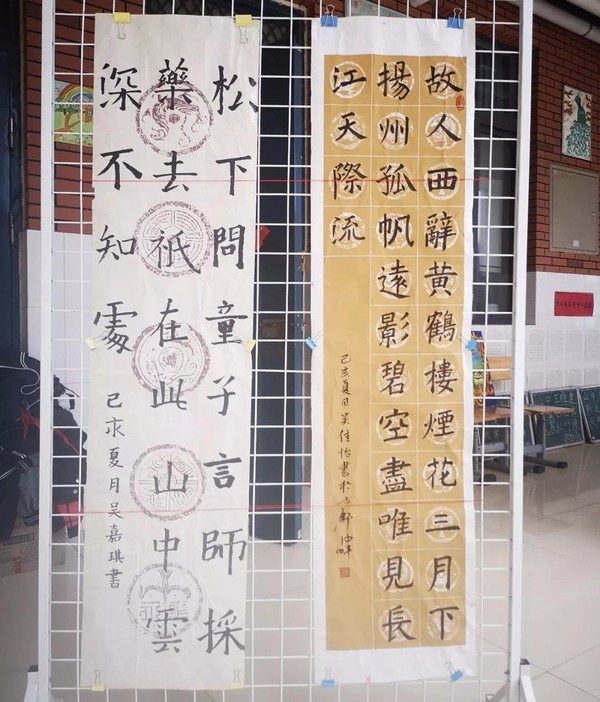 故人西辭黄鶴樓煙花三月下
揚州孤帆遠影碧空盡唯見長
江天際流
己亥夏月吴佳怡書於
松下問童子言師採
藥去祇在此山中雲
深不知處
己亥夏月吴嘉琪書